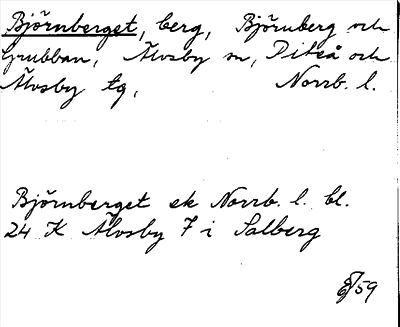 Björnberget, berg, Björnberg och
Grubban, Älvsby sn, Piteå och
Älvsby tg, Norrb. l.
Björnberget ek Norrb. l. bl.
24 K Älvsby 7 i Salberg
/59